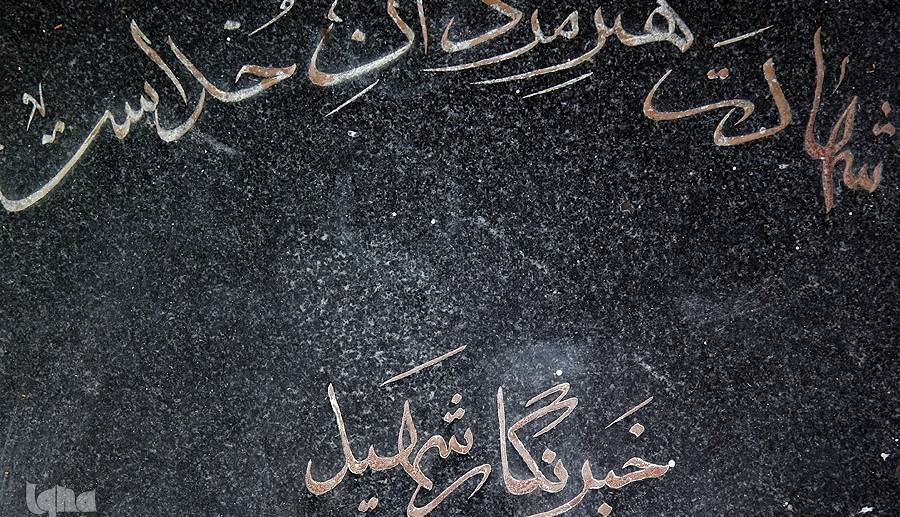 شهادت هنر مردان خداست
خبرنگار شهید
iqna